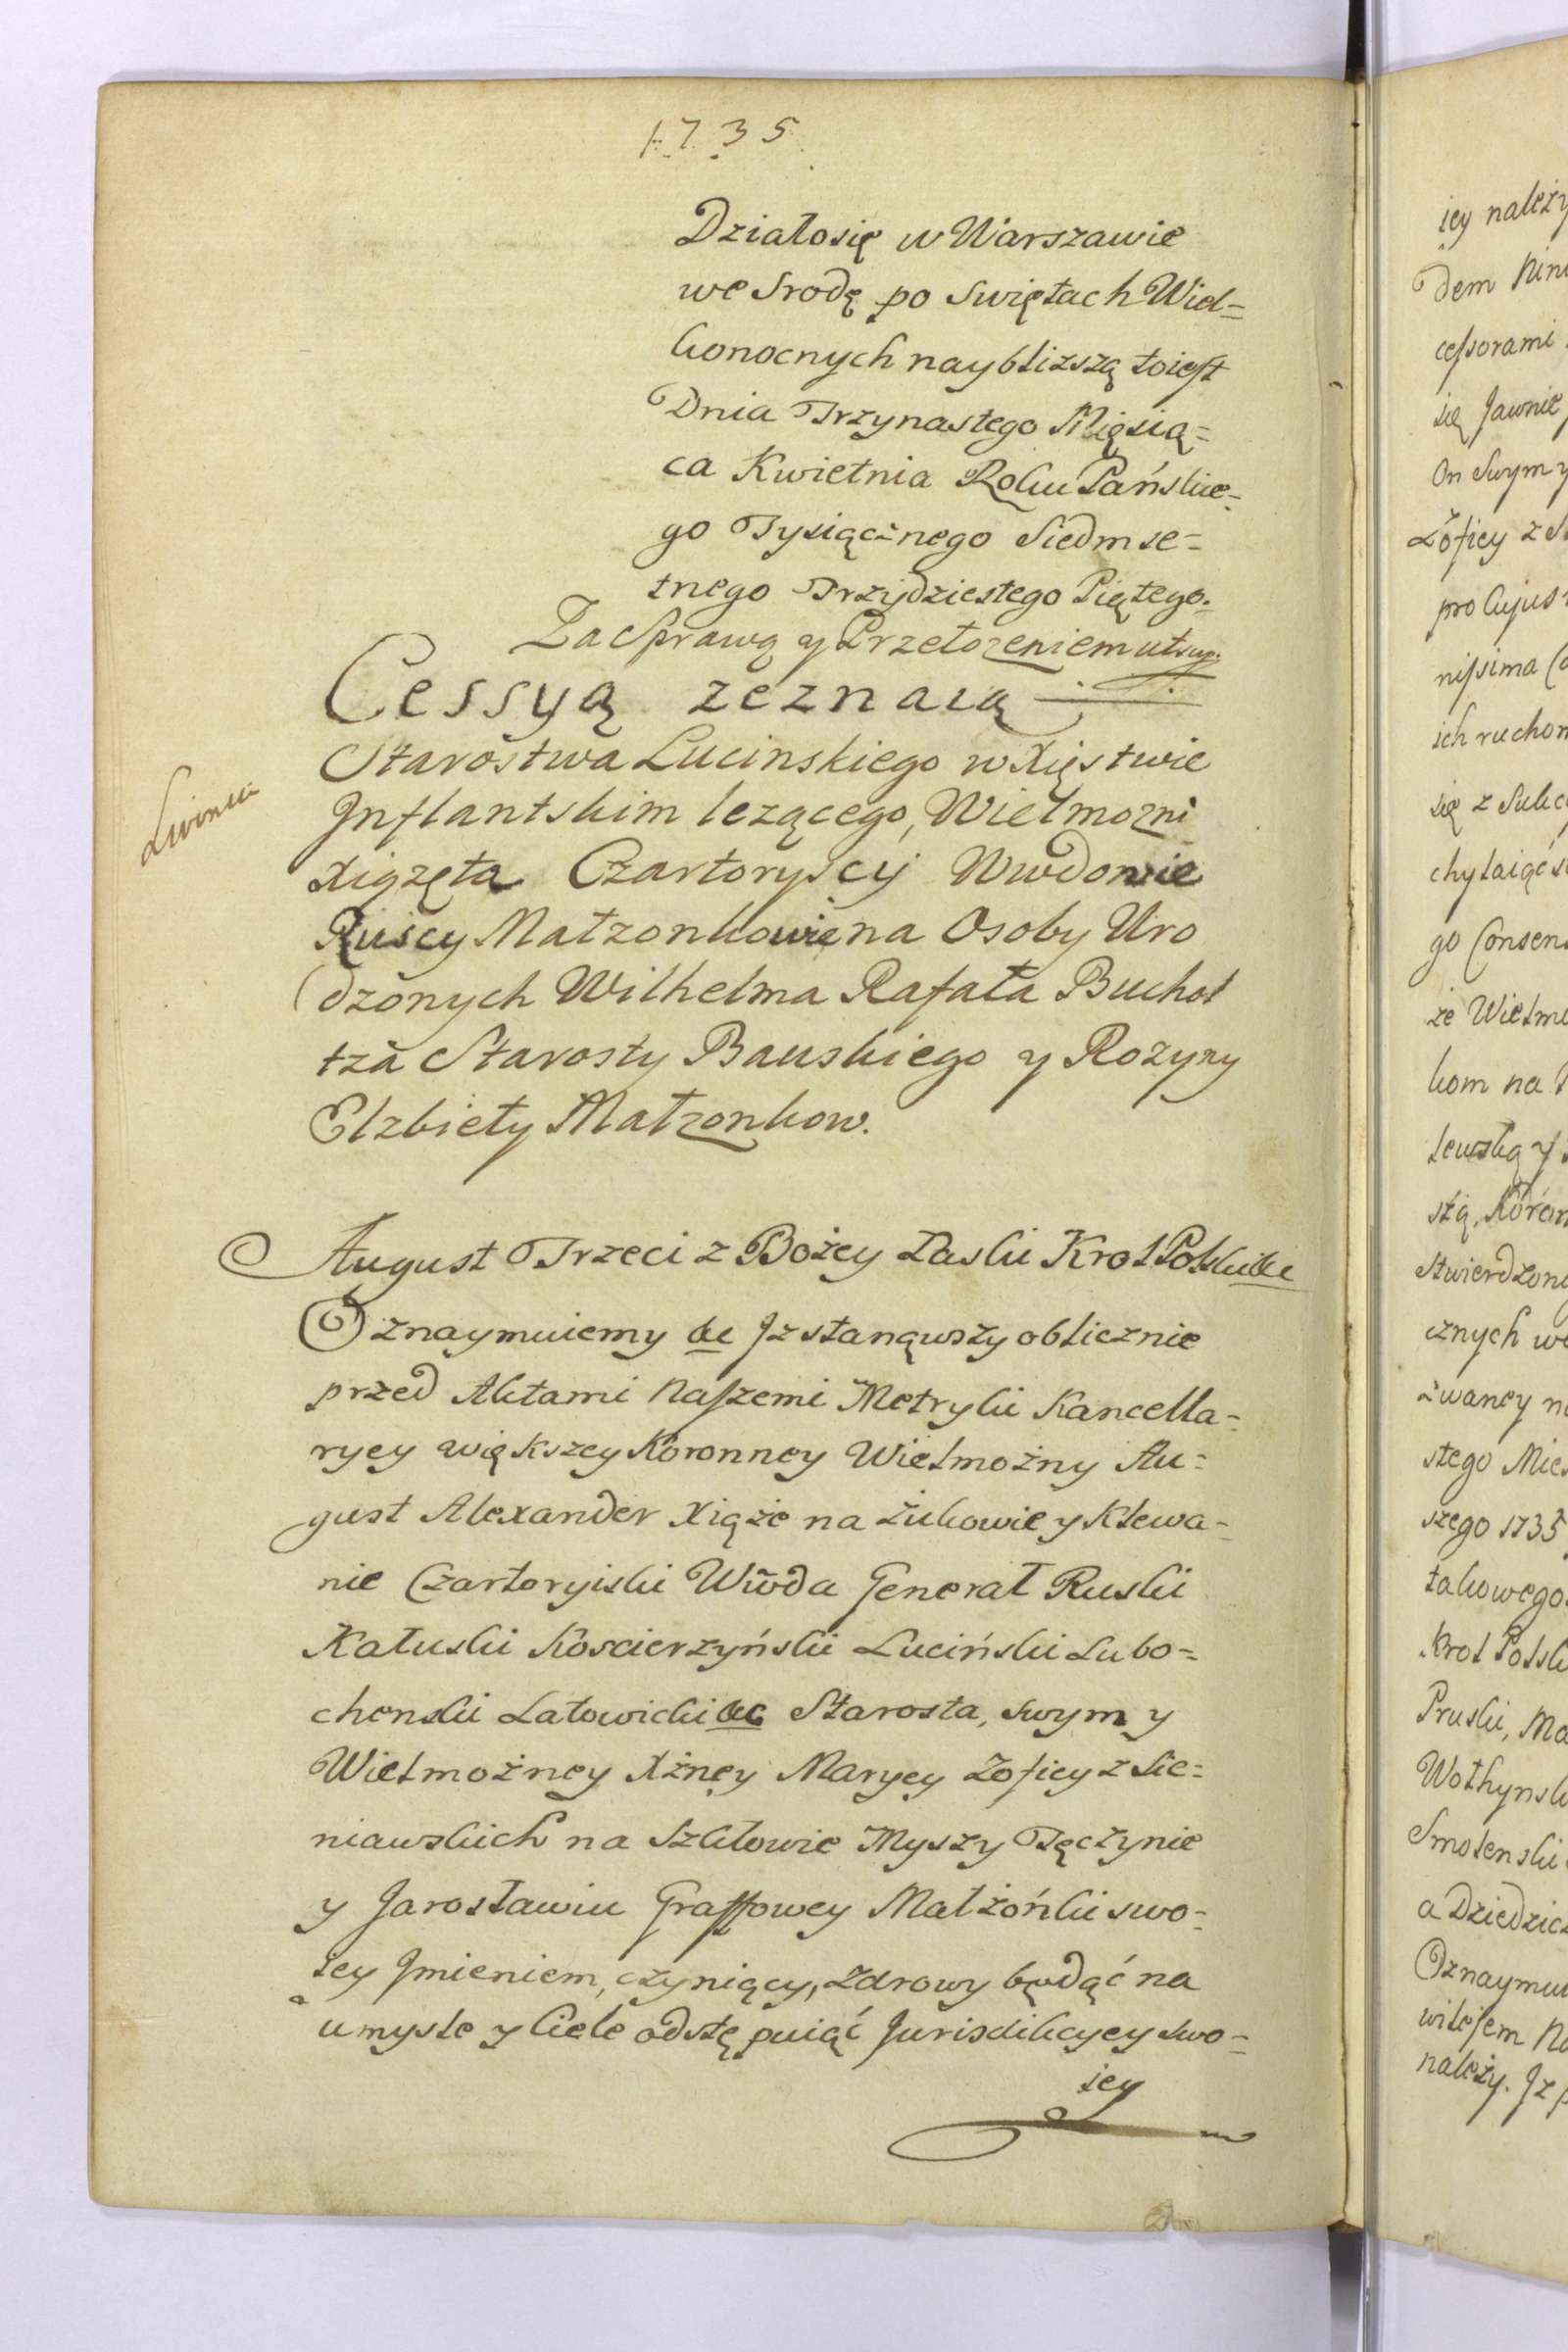 1735
Działosię w Warszawie
we Srodę po Swiętach Wiel=
konocnych naybliższą toiest
Dnia Trzynastego Miesią=
ca Kwietnia Roku Pańskie=
go Tysiącznego Siedmse=
tnego Trzydziestego Piątego.
Za Sprawą y Przełozeniem ut sup.
Cessyą zeznaią
Starostwa Lucinskiego w Xięstwie
Inflantskim lezącego, Wielmozni
Livonica
Xiązęta Czartoryscy Wwdowie
Ruscy Małzonkowie na Osoby Uro
dzonych Wilhelma Rafała Buchol
tza Starosty Bauskiego y Rozyny
Elzbiety Małzonkow.
August Trzeci z Bożey Łaski Krol Polski &c
Oznaymuiemy &c Iz stanąwszy oblicznie
przed Aktami Naszemi Metryki Kancella=
ryey większey Koronney Wielmożny Au=
gust Alexander Xiąże na Żukowie y Klewa=
nie Czartoryiski Wwda Generał Ruski
Kałuski Koscierzyński Luciński Lubo=
chenski Latowicki &c Starosta, swym y
Wielmożney Xżney Maryey Zofiey z Sie=
niawskich na Szkłowie Myszy Tęczynie
y Jarosławiu Graffowey Małżońki swo=
iey Imieniem, czyniący, zdrowy będąć na
umysle y Ciele odstępuiąć Jurisdikcyey swo=
iey
iey należy
dem
cessorami
się Jawnie
On Swym y
Zofiey z
pro Cujus
nissima
ich ruchom
się z
chylaiąć
go Consens
że Wielm
kom na
lewską y
stą, Koron
Stwierdzon
cznych
zwaney
stego Mies
szego 1735
takowego
Krol Polsk
Pruski, Ma
Wołhynsk
Smolenski
a Dziedzic
Oznaymu
wilejem Na
należy. Iz